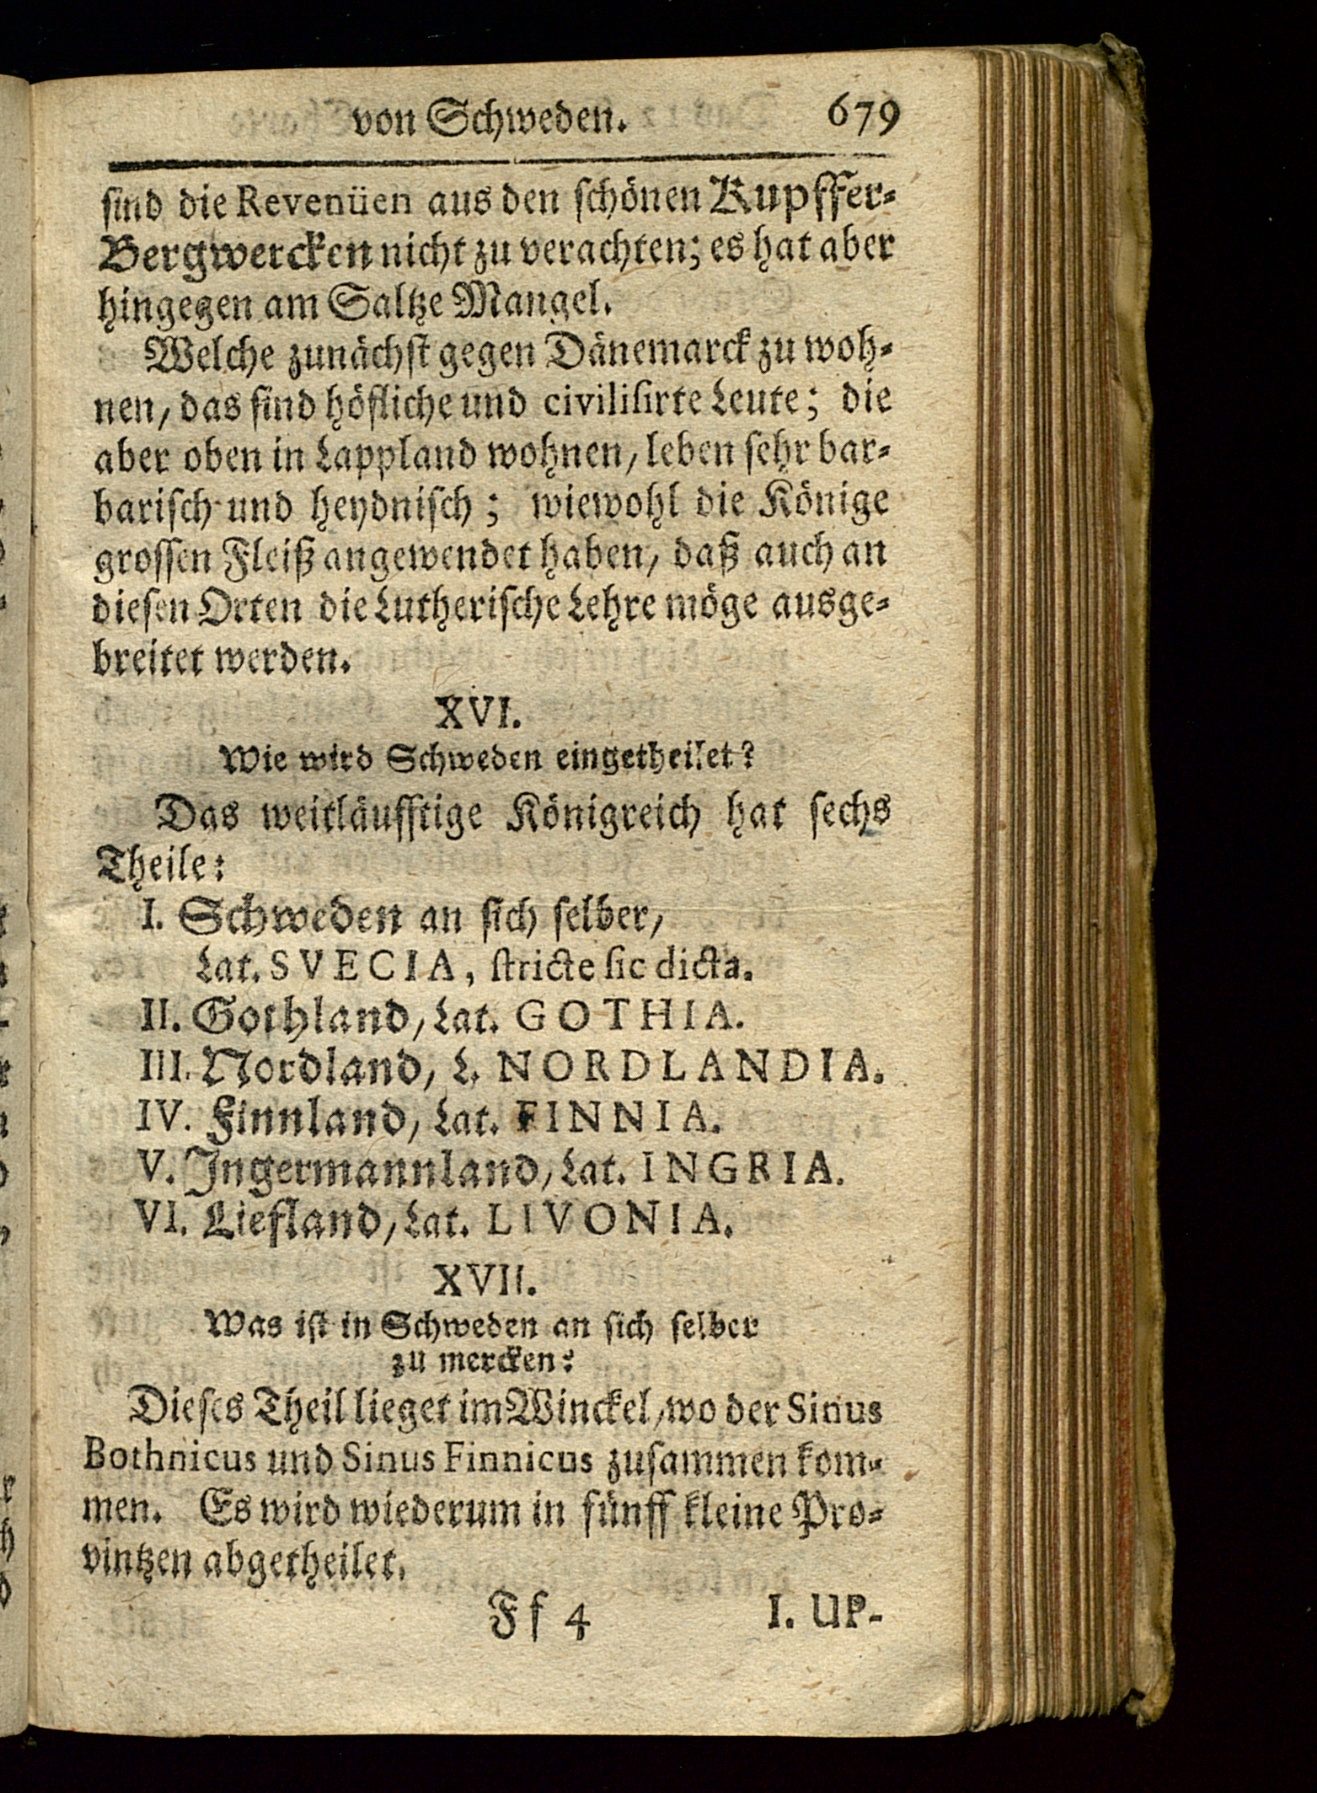 von Schweden. 679
sind die Revenüen aus den schönen Kupffer-
Bergwercken nicht zu verachten; es hat aber
hingegen am Saltze Mangel.
Welche zunächst gegen Dänemarck zu woh-
nen, das sind höfliche und civilisirte Leute; die
aber oben in Lappland wohnen, leben sehr bar-
barisch und heydnisch; wiewohl die Könige
grossen Fleiß angewendet haben, daß auch an
diesen Orten die Lutherische Lehre möge ausge-
breitet werden.
XVI.
Wie wird Schweden eingetheilet?
Das weitläufftige Königreich hat sechs
Theile:
I. Schweden an sich selber,
Lat. SVECIA, stricte sic dicta.
II. Gothland, Lat. GOTHIA.
III. Nordland, L. NORDLANDIA.
IV. Finnland, Lat. FINNIA.
V. Ingermannland, Lat. INGRIA.
VI. Liefland, Lat. LIVONIA.
XVII.
Was ist in Schweden an sich selber
zu mercken?
Dieses Theil lieget im Winckel, wo der Sinus
Bothnicus und Sinus Finnicus zusammen kom-
men. Es wird wiederum in fünff kleine Pro-
vintzen abgetheilet.
Ff 4 I. UP-